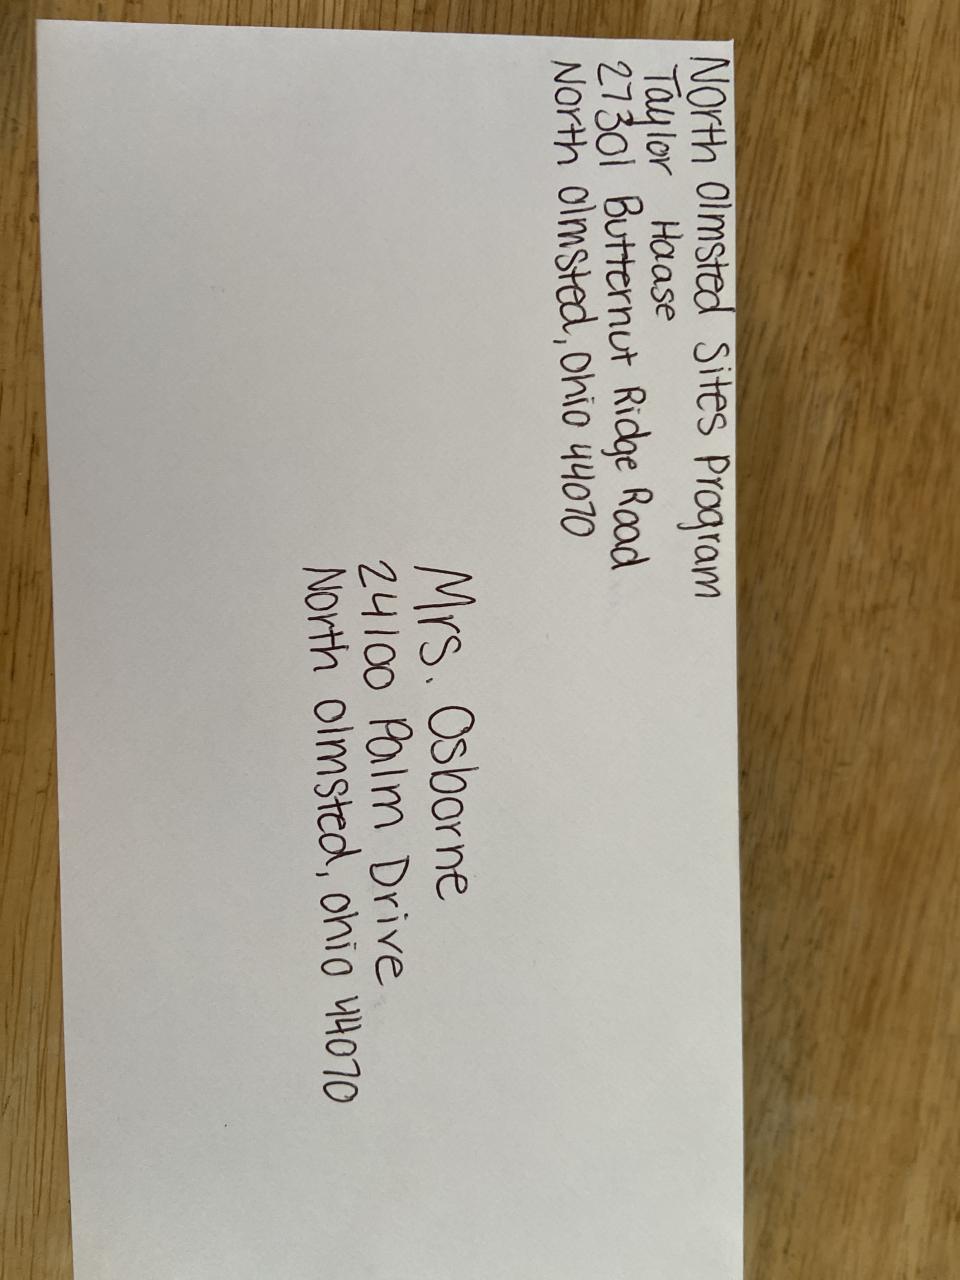 North Olmsted Sites Program
Taylor Haase
27301 Butternut Ridge Road
North Olmsted, Ohio 44070
Mrs. Osborne
24100 Palm Drive
North Olmsted, Ohio 44070